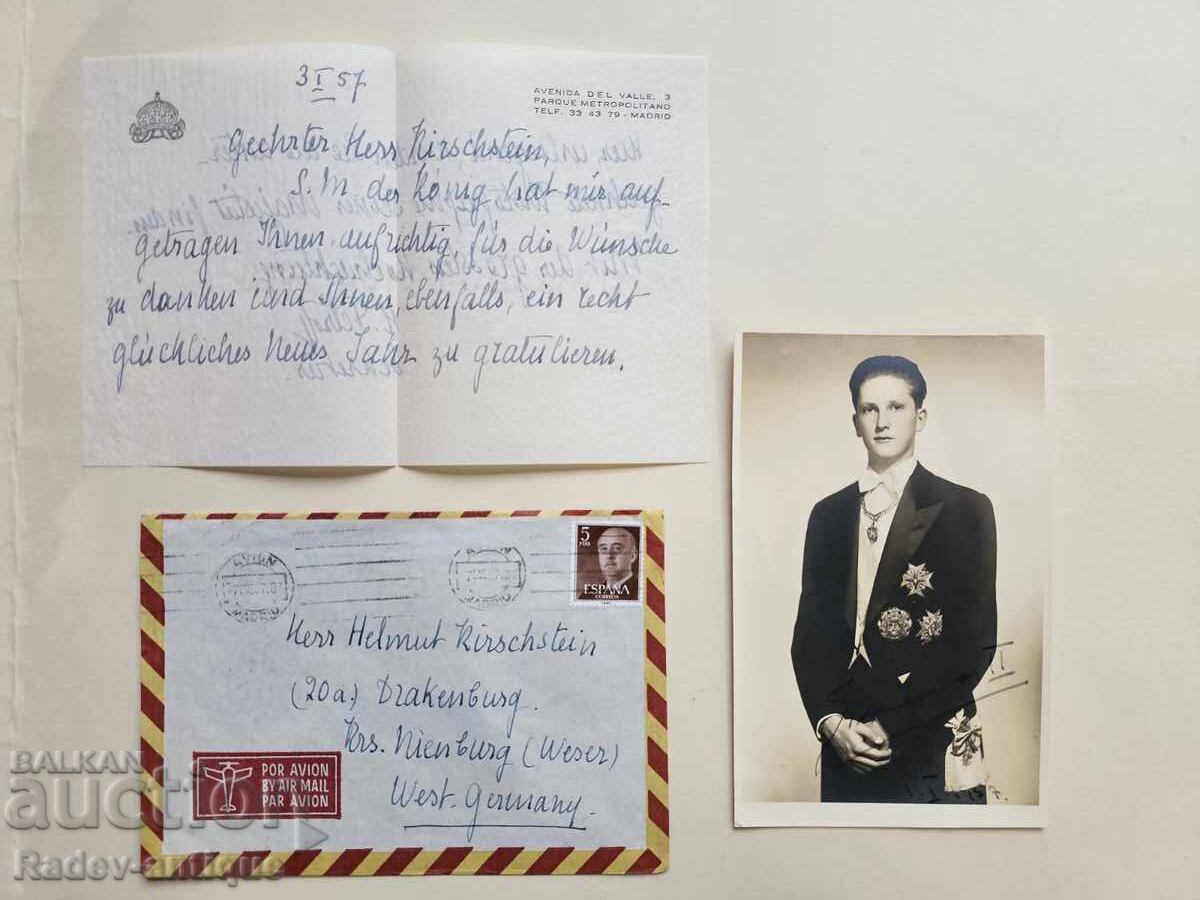 3 I 57
AVENIDA DEL VALLE, 3
PARQUE METROPOLITANO
TELF. 33 43 79 - MADRID
Geehrter Herr Kirschstein,
S. M. der König hat mir auf-
getragen Ihnen aufrichtig für die Wünsche
zu danken und Ihnen, ebenfalls, ein recht
glückliches Neues Jahr zu gratulieren.
AVION
MADRID
MADRID
5
PTAS
ESPAÑA
CORREOS
Herr Helmut Kirschstein
(20a) Drakenburg.
Krs. Nienburg (Weser)
West-Germany
POR AVION
BY AIR MAIL
PAR AVION
II
I. I. 1957.
BALKAN
auction
Radev-antique